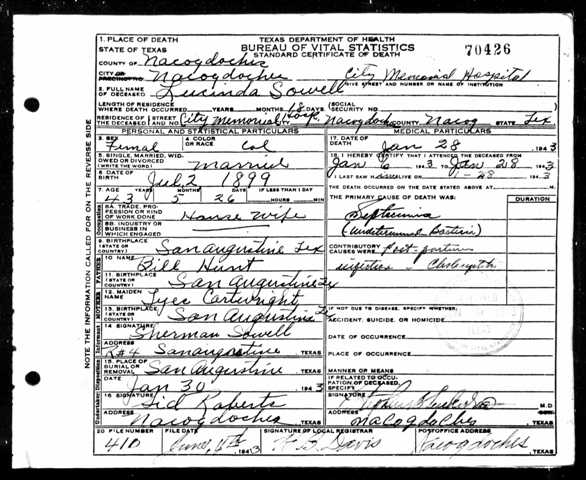 TEXAS DEPARTMENT OF HEALTH
BUREAU OF VITAL STATISTICS
STANDARD CERTIFICATE OF DEATH
70426
1. PLACE OF DEATH
STATE OF TEXAS
COUNTY OF Nacogdoches
CITY OR PRECINCT NO. Nacogdoches City Memorial Hospital
GIVE STREET AND NUMBER OR NAME OF INSTITUTION
2. FULL NAME OF DECEASED Lucinda Sowell
LENGTH OF RESIDENCE WHERE DEATH OCCURRED YEARS MONTHS 18 DAYS SOCIAL SECURITY NO.
RESIDENCE OF THE DECEASED STREET AND NO. City Memorial Hosp. CITY Nacogdoches COUNTY Nacog STATE Tex
PERSONAL AND STATISTICAL PARTICULARS
MEDICAL PARTICULARS
3. SEX Femal
4. COLOR OR RACE Col
5. SINGLE, MARRIED, WIDOWED OR DIVORCED (WRITE THE WORD) Married
6. DATE OF BIRTH Jul 2 1899
7. AGE YEARS MONTHS DAYS IF LESS THAN 1 DAY
43 5 26 HOURS MIN
8A. TRADE, PROFESSION OR KIND OF WORK DONE House Wife
8B. INDUSTRY OR BUSINESS IN WHICH ENGAGED
9. BIRTHPLACE (STATE OR COUNTRY) San Augustine Tex
10. NAME Bill Hunt
11. BIRTHPLACE (STATE OR COUNTRY) San Augustine Tex
12. MAIDEN NAME Cartwright
13. BIRTHPLACE (STATE OR COUNTRY) San Augustine
14. SIGNATURE Sherman Sowell
ADDRESS R#4 San augustine TEXAS
15. PLACE OF BURIAL OR REMOVAL San Augustine TEXAS
DATE Jan 30 1943
16. SIGNATURE Sid Roberts
ADDRESS Nacogdoches TEXAS
17. DATE OF DEATH Jan 28 1943
18. I HEREBY CERTIFY THAT I ATTENDED THE DECEASED FROM
Jan 6 1943 TO Jan 28 1943
I LAST SAW ALIVE ON 1-28 1943
THE DEATH OCCURRED ON THE DATE STATED ABOVE AT M.
THE PRIMARY CAUSE OF DEATH WAS: DURATION
Septicemia
CONTRIBUTORY CAUSES WERE Post-partum
infection
IF NOT DUE TO DISEASE, SPECIFY WHETHER:
ACCIDENT, SUICIDE, OR HOMICIDE
DATE OF OCCURRENCE
PLACE OF OCCURRENCE
MANNER OR MEANS
IF RELATED TO OCCUPATION OF DECEASED, SPECIFY
SIGNATURE M.D.
ADDRESS Nacogdoches TEXAS
20 FILE NUMBER FILE DATE SIGNATURE OF LOCAL REGISTRAR POSTOFFICE ADDRESS
410 1943 Davis Nacogdoches TEXAS
NOTE THE INFORMATION CALLED FOR ON THE REVERSE SIDE